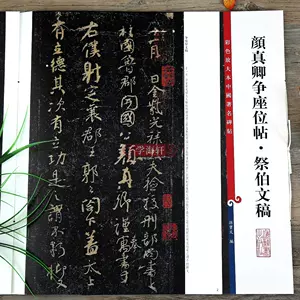 顔真卿争座位帖·祭伯文稿
彩色放大本中國著名碑帖
孫寶文 編
十一月 日金紫光祿大夫檢校刑部尚書上
柱國魯郡開國公顔真卿謹奉書于
右僕射定襄郡王郭公閤下蓋太上
有立德其次有立功是之謂不朽抑
学海轩